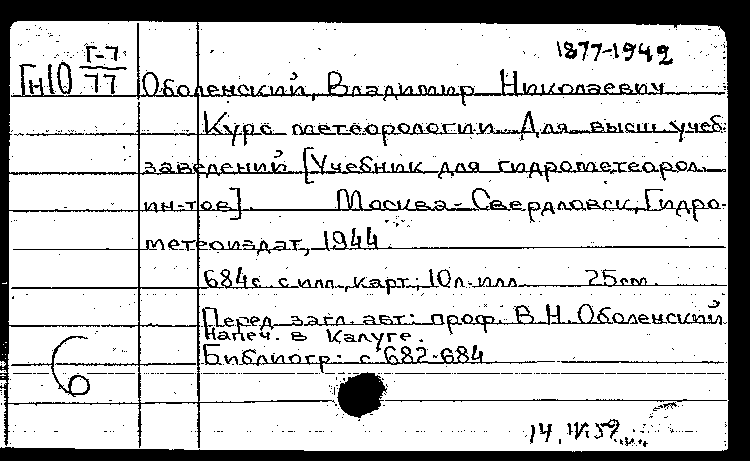 1877-1942
Гн10 Г-7/77
Оболенский, Владимир Николаевич
Курс метеорологии. Для высш. учеб.
заведений [Учебник для гидрометеорол.
ин-тов]. Москва-Свердловск, Гидро-
метеоиздат, 1944.
684с. с илл., карт.; 10л. илл. 25см.
Перед загл. авт.: проф. В.Н. Оболенский
Напеч. в Калуге.
Библиогр.: с 682-684
6
14. 59